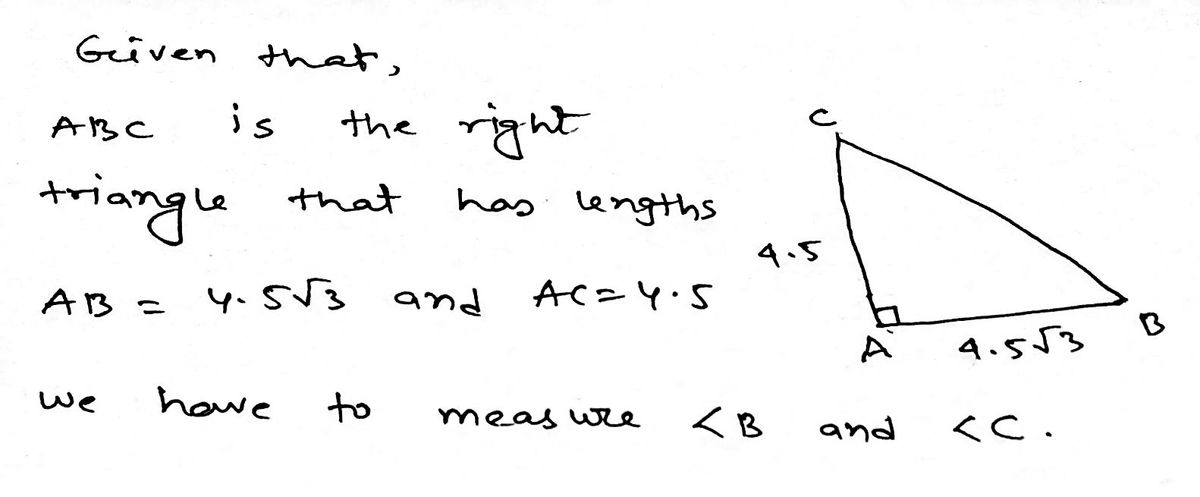 Given that,
ABC is the right
triangle that has lengths
AB = 4.5√3 and AC=4.5
we have to measure <B and <C.
C
4.5
A
4.5√3
B